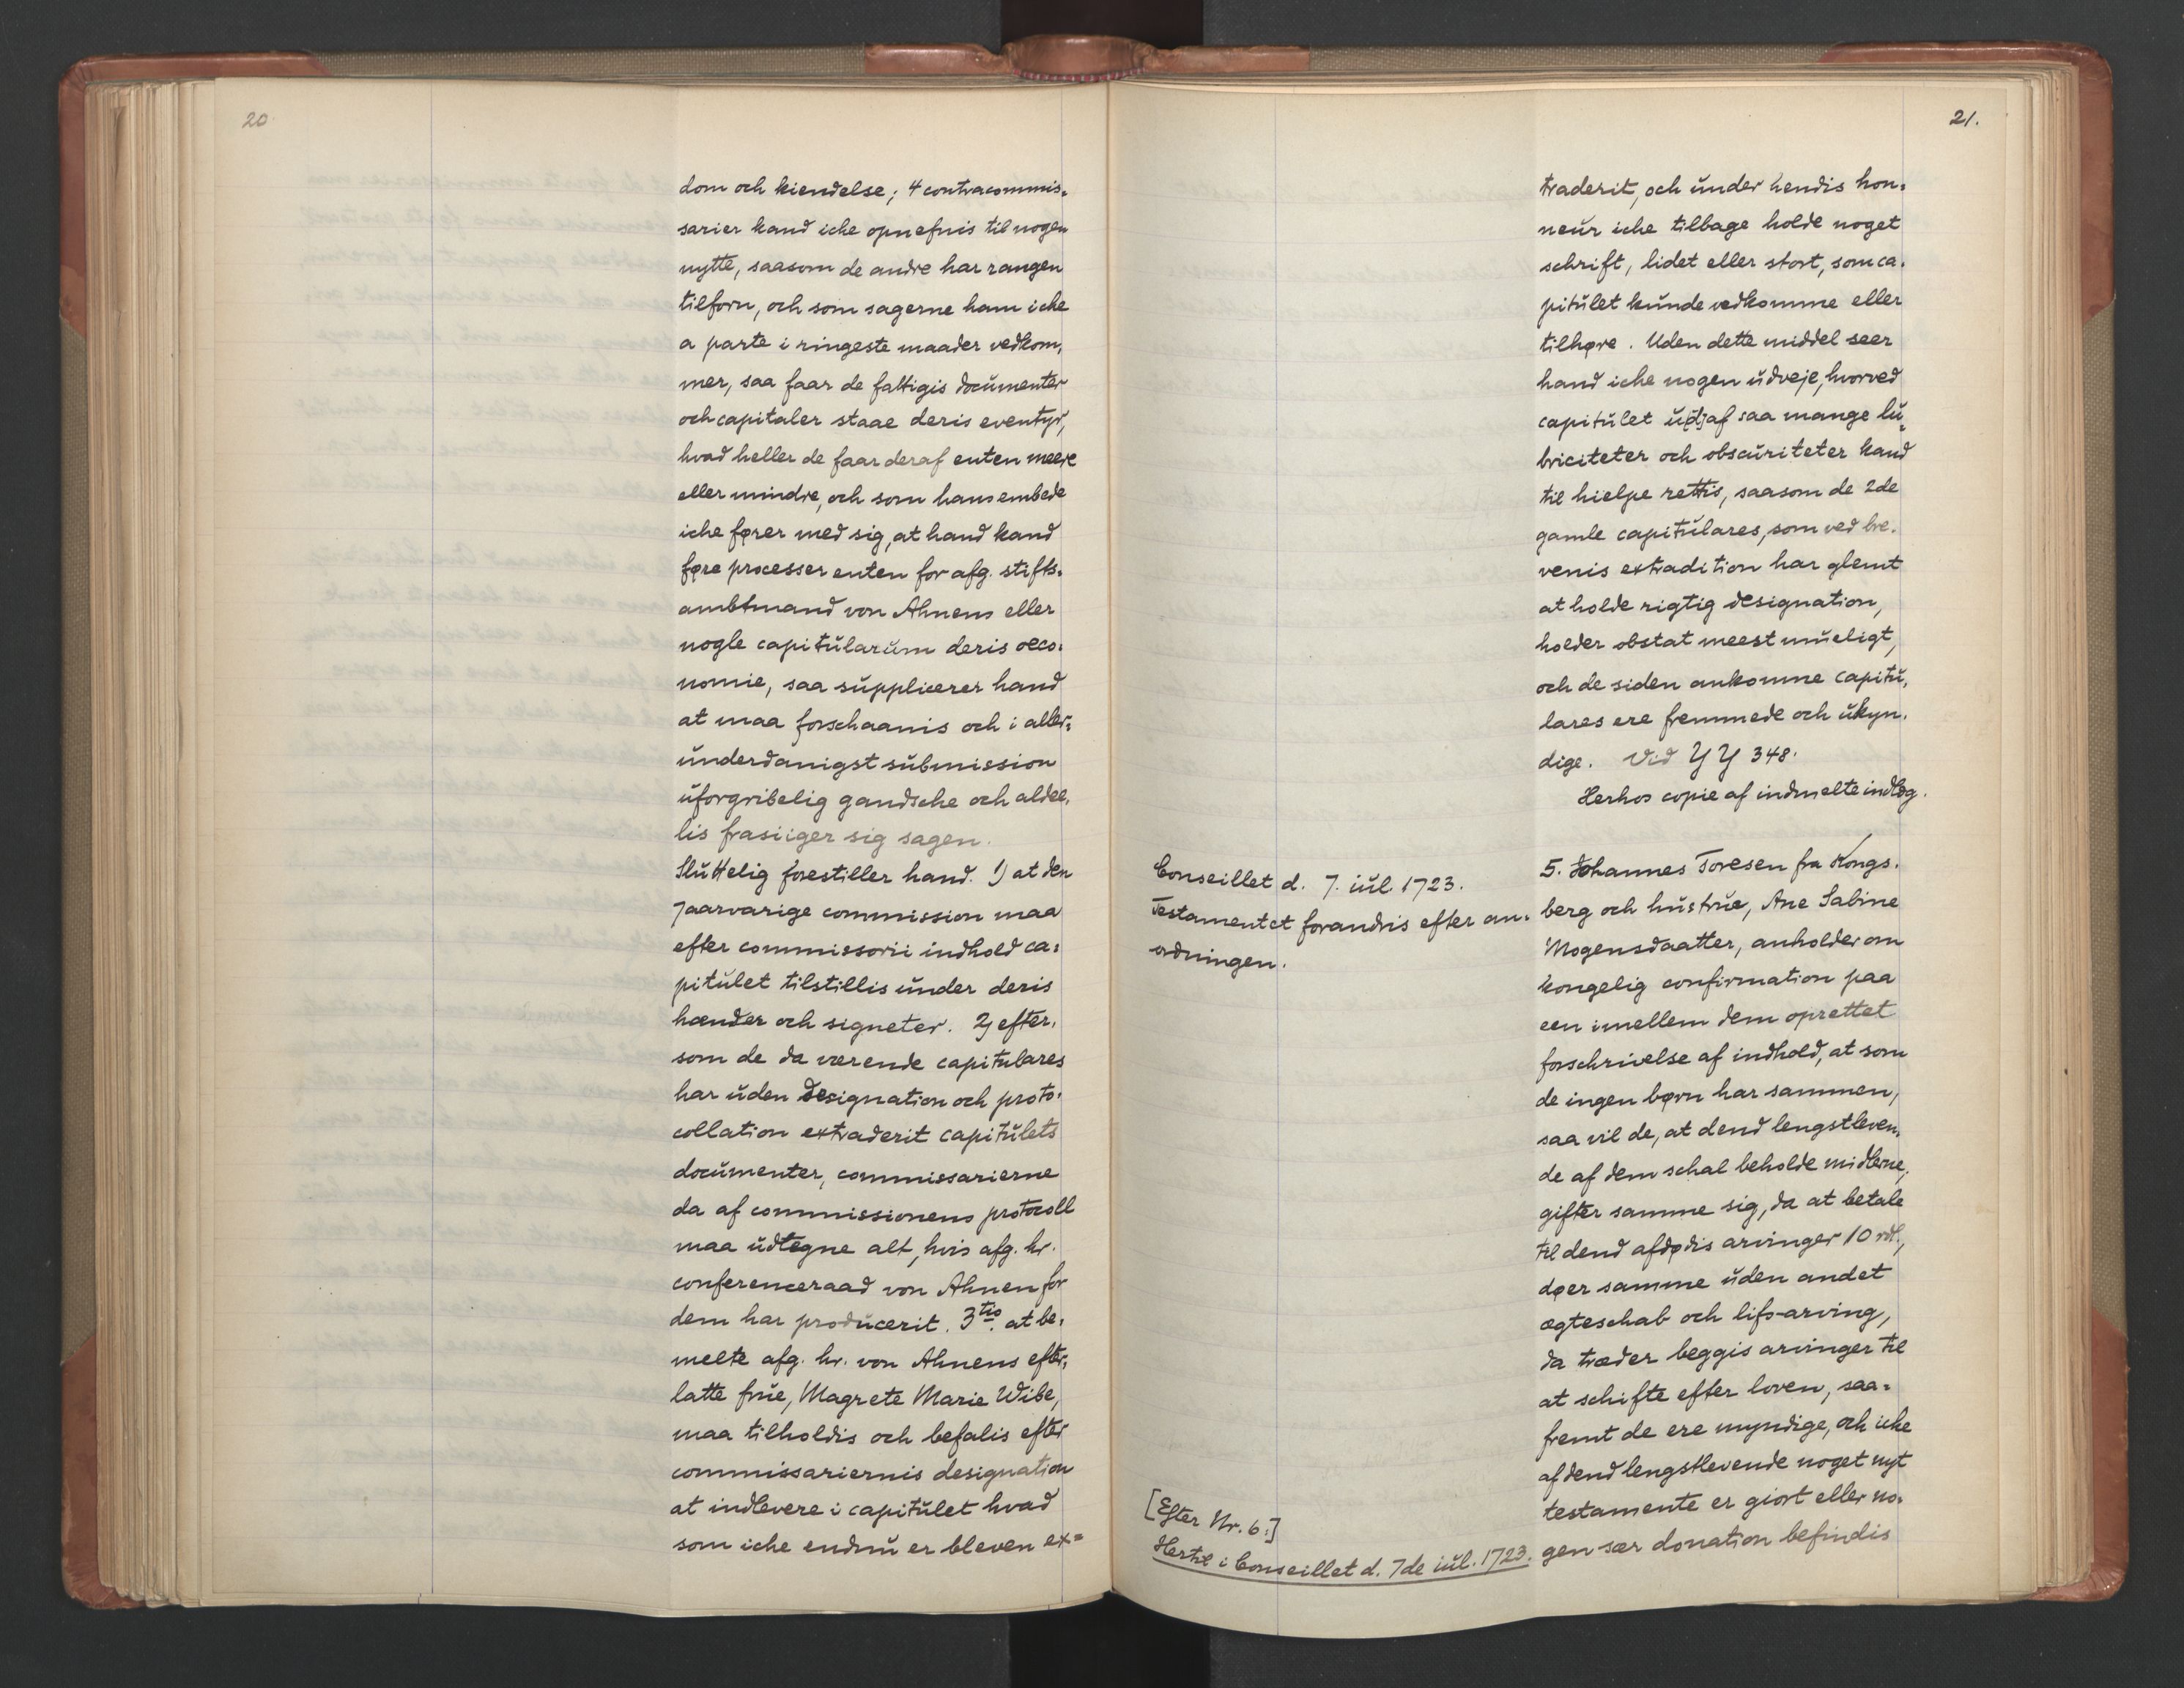 20
dom och kiendelse; 4 contracommis=
sarier kand iche opnefnis til nogen
nytte, saasom de andre har rangen
tilforn, och som sagerne ham iche
a parte i ringeste maader vedkom,
mer, saa faar de fattigis documenter
och capitaler staae deris eventyr,
hvad heller de faar deraf enten meere
eller mindre, och som hans embede
iche fører med sig, at hand kand
føre processer enten for afg. stifts=
ambtmand von Ahnens eller
nogle capitŭlarŭm deris oeco=
nomie, saa sŭpplicerer hand
at maa forschaanis och i aller=
ŭnderdanigst sŭbmission
ŭforgribelig gandsche och aldee,
lis frasiiger sig sagen.
Slŭttelig forestiller hand. 1) at den
7aarvarige commission maa
efter commissorii indhold ca=
pitŭlet tilstillis ŭnder deris
hænder och signeter. 2) efter,
som de da værende capitŭlares
har ŭden designation och proto=
collation extraderit capitŭlets
docŭmenter, commissarierne
da af commissionens protocoll
maa ŭdtegne alt, hvis afg. hr.
conferenceraad von Ahnen for
dem har prodŭcerit. 3tio. at be,
meelte afg. hr. von Ahnens efter,
latte frŭe, Magrete Marie Wibe,
maa tilholdis och befalis efter
commissariernis designation
at indlevere i capitŭlet hvad
som iche endnŭ er bleven ex=
21.
traderit, och ŭnder hendis hon=
neŭr iche tilbage holde noget
schrift, lidet eller stort, som ca.
pitŭlet kŭnde vedkomme eller
tilhøre. Uden dette middel seer
hand iche nogen ŭdveje, hvorved
capitŭlet ŭ[d]af saa mange lŭ=
briciteter och obscŭriteter kand
til hielpe rettis, saasom de 2de
gamle capitŭlares, som ved bre.
venis extradition har glemt
at holde rigtig designation,
holder obstat meest ŭmŭeligt,
och de siden ankomne capitŭ,
lares ere fremmede och ŭkyn.
dige. Vid YY 348.
Herhos copie af indmelte indlæg.
Conseillet d. 7. iŭl. 1723.
Testamentet forandris efter an=
ordningen.
5. Johannes Toresen fra Kongs.
berg och hŭstrŭe, Ane Sabine
Mogensdaatter, anholder om
kongelig confirmation paa
een imellem dem oprettet
forschrivelse af indhold, at som
de ingen børn har sammen,
saa vil de, at dend lengstleven,
de af dem schal beholde midlerne;
gifter samme sig, da at betale
til dend afdødis arvinger 10 rdl.,
døer samme ŭden andet
ægteschab och lifs-arving,
da træder beggis arvinger til
at schifte efter loven, saa=
fremt de ere myndige, och iche
af dend lengstlevende noget nyt
testamente er giort eller no=
gen sær donation befindis
[Efter Nr. 6:]
Hertil i Conseillet d. 7de iŭl. 1723.